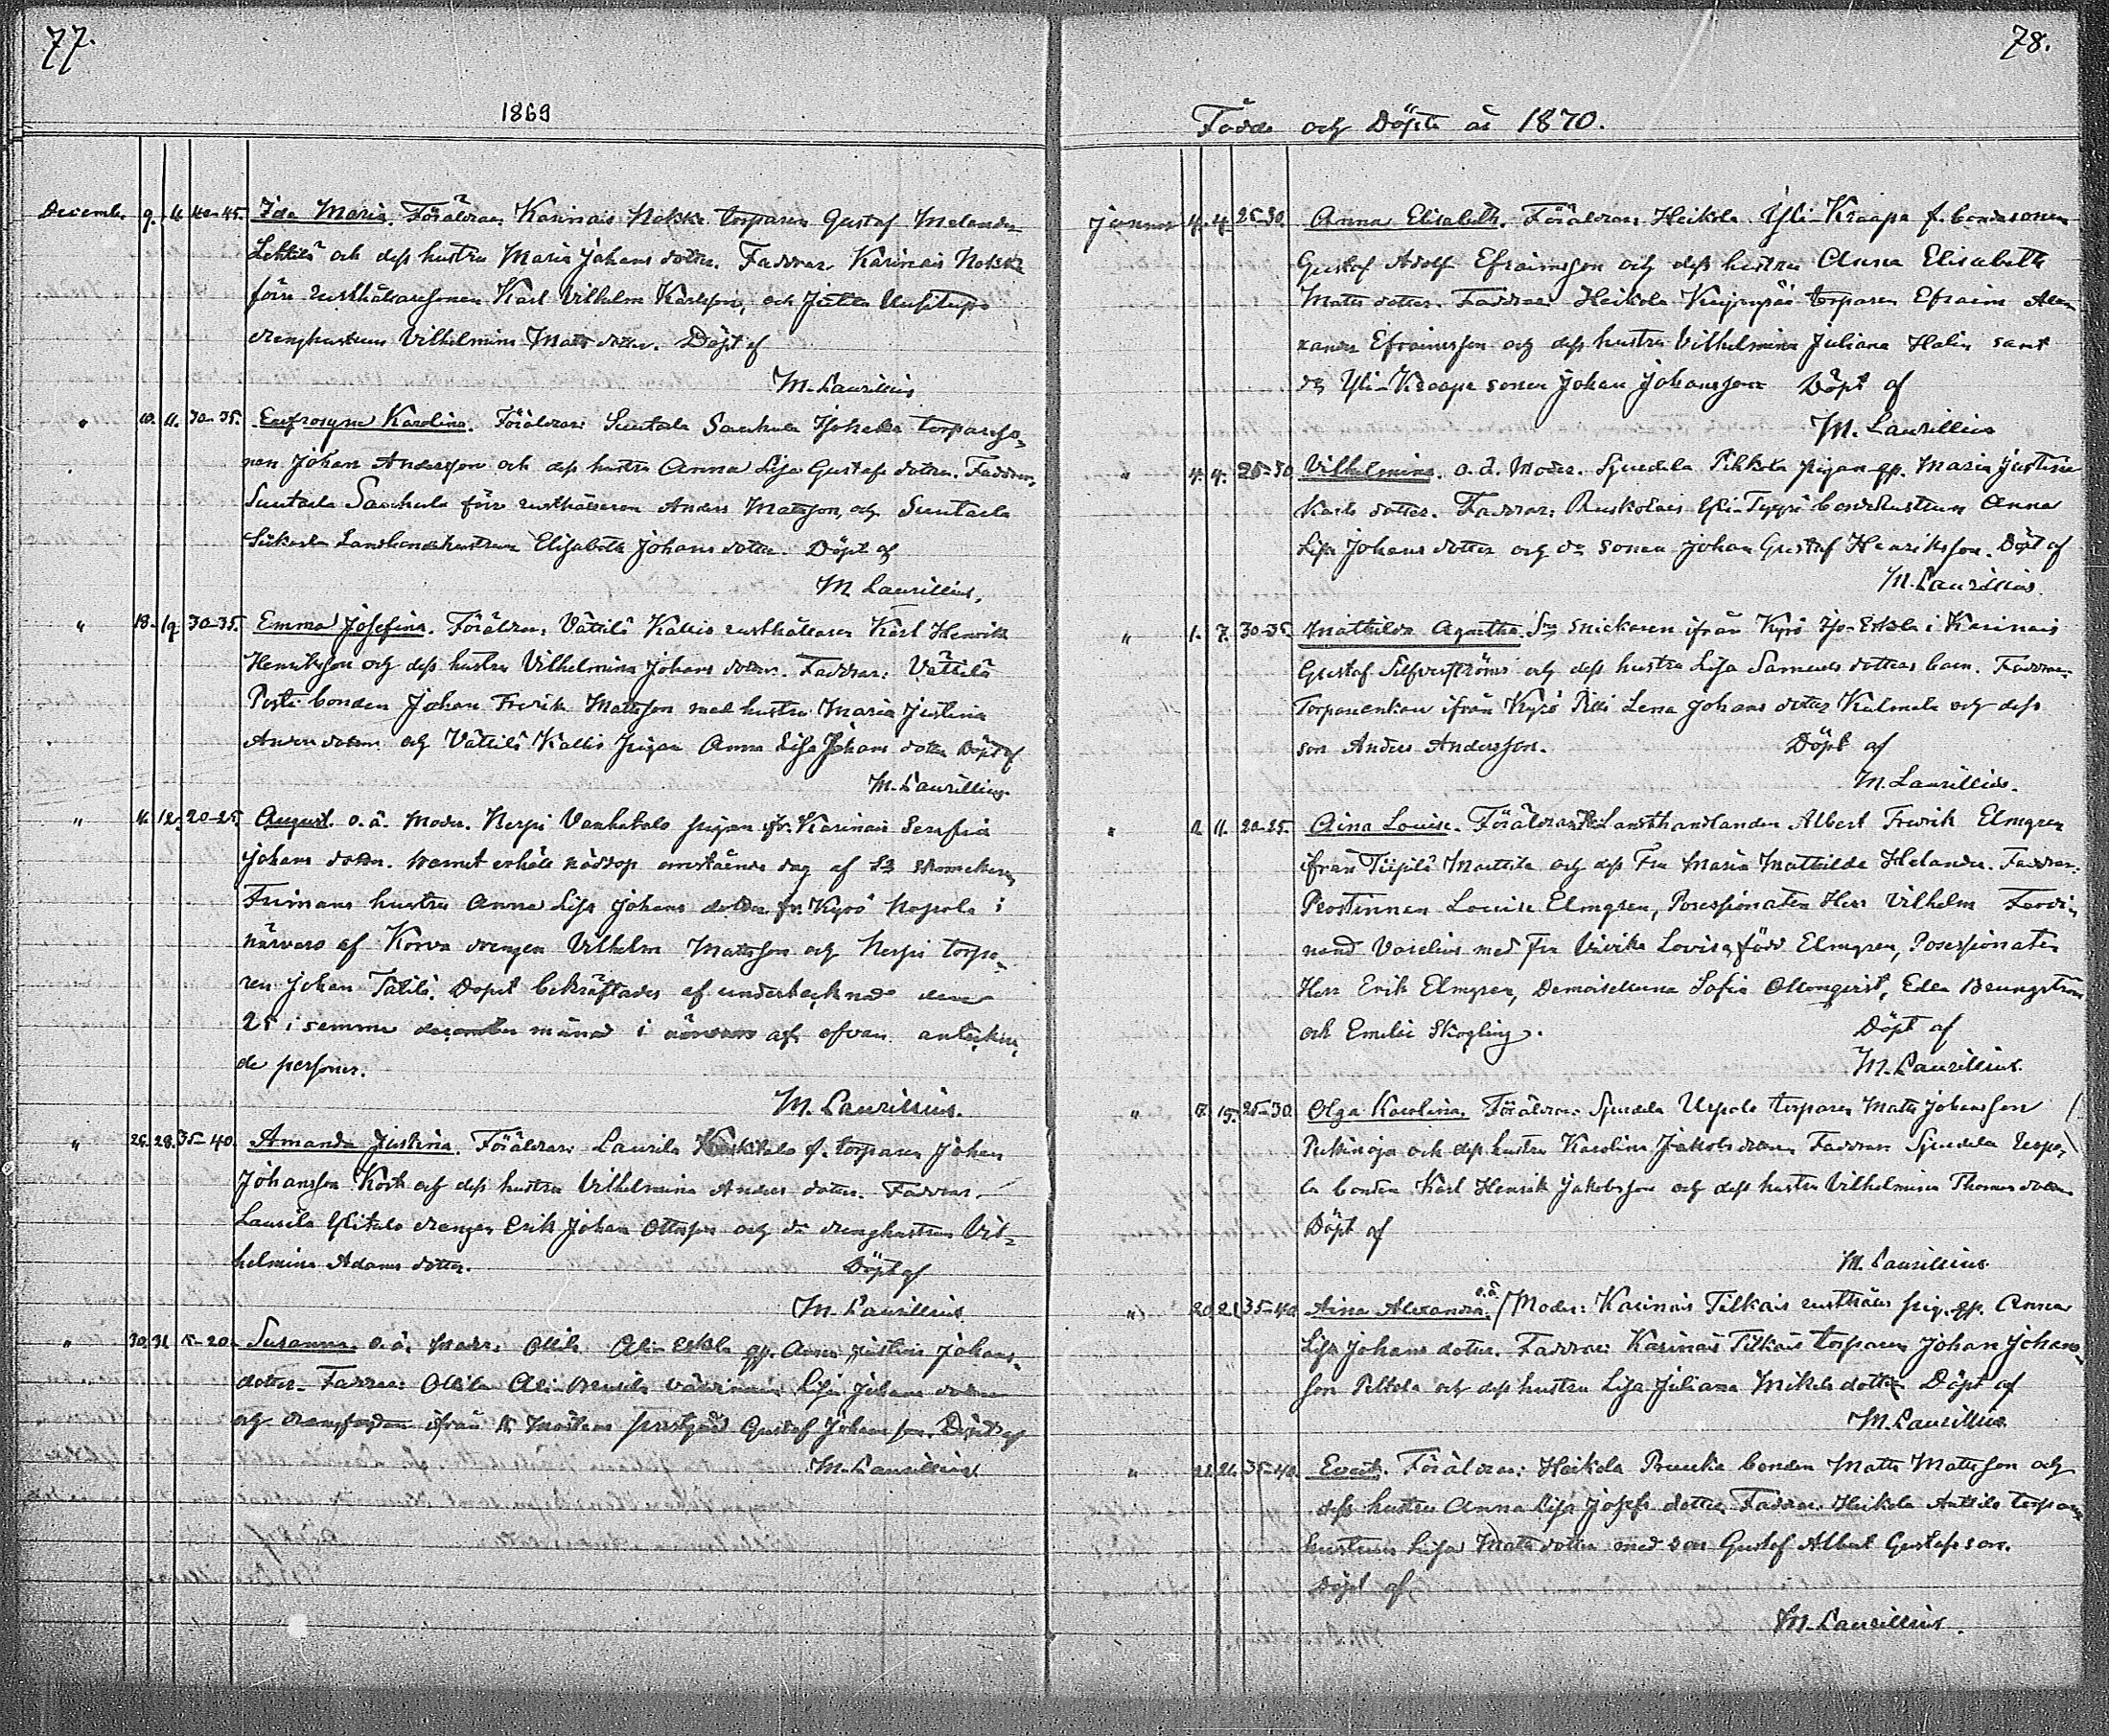 77.
1869
December 9. 11. 40-45. Ida Maria. Föräldrar: Karinais Nokka torparen Gustaf Melander
Lehtilä och dess hustru Maria Johans dotter. Faddrar: Karinais Nokka
förre rusthållaresonen Karl Vilhelm Karlsson, och Juttila Uusitupa
dränghustrun Vilhelmina Mats dotter. Döpt af
M. Laurillius
" 10. 11. 30-35. Eufrosyne Karolina. Föräldrar: Suutarla Saukula torpareso-
nen Johan Andersson och dess hustru Anna Lisa Gustafs dotter. Faddrar:
Suutarla Saukula förre rusthållaren Anders Matsson, och Suutarla
landbondehustrun Elisabeth Johans dotter. Döpt af
M Laurillius.
" 18. 19. 30-35. Emma Josefina. Föräldrar: Vättilä Kallis rusthållaren Karl Henrik
Henriksson och dess hustru Vilhelmina Johans dotter. Faddrar: Vättilä
Posti bonden Johan Fredrik Mattsson med hustru Maria Justina
Anders dotter och Vättilä Kallis pigan Anna Lisa Johans dotter Döpt af
M. Laurillius
" 11. 12. 20-25. August. o.ä. Moder: Verpi Vanhatalo pigan ifr. Karinais Serafia
Johans dotter. Barnet erhöll nöddop omstående dag af
Frimans hustru Anna Lisa Johans dotter fr. Kyrö Nopola i
närvaro af Korva drengen Vilhelm Mattsson och torpa-
ren Johan Tätilä. Dopet bekräftades af undertecknad den
25 i samma december månad i närvaro af ofvan anteckna-
de personer.
M. Laurillius.
" 26. 28. 35-40. Amanda Justina. Föräldrar: Laurila f. torparen Johan
Johansson Kock och dess hustru Vilhelmina Anders dotter. Faddrar:
Laurila Ylitalo drengen Erik Johan Ottosson och d:o dränghustrun Vil-
helmina Adams dotter. Döpt af
M. Laurillius
" 30. 31. 15-20. Susanna. o.ä. Moder: Ollila Ali-Eskola qp. Anna Justina Johans-
dotter. Faddrar: Ollila värdinnan Lisa Johans dotter
och drengfogden ifrån St Mårtens prestgård Gustaf Johansson. Döpt af
M. Laurillius
78.
Födde och Döpte år 1870.
Januar 4. 4. 25-30. Anna Elisabeth. Föräldrar: Heikola Yli-Knaapa f. bondesonen
Gustaf Adolf Efraimsson och dess hustru Anna Elisabeth
Matts dotter. Faddrar: Heikola torparen Efraim Alex-
ander Efraimsson och dess hustru Vilhelmina Juliana Halin samt
d:o Yli-Knaapa sonen Johan Johansson Döpt af
M. Laurillius
" 4. 4. 25-30 Vilhelmina. o.ä. Moder: Sjuedala Pihkola pigan qp. Maria Justina
Karls dotter. Faddrar: Ruskolais Yli-Tyyri bondehustrun Anna
Lisa Johans dotter och d:o sonen Johan Gustaf Henriksson. Döpt af
M. Laurillius.
" 1. 7. 30-35. Mathilda Agatha. Snickaren ifrån Kyrö i Karinais
Gustaf Silfverströms och dess hustru Lisa Samuels dotters barn. Faddrar:
Torpareenkan ifrån Kyrö Pilli Lena Johans dotter Kulmala och dess
son Anders Andersson. Döpt af
M. Laurillius.
" 2. 11. 20-25. Aina Louise. Föräldrar: Landthandlanden Albert Fredrik Elmgren
ifrån Tiipilä Marttila och dess Fru Maria Mathilda Helander. Faddrar:
Prostinnan Louise Elmgren, Possessionaten Herr Vilhelm Ferdi-
nand Vaselius med fru Vivika Lovisa född Elmgren, Possessionaten
Herr Erik Elmgren, Demoisellerna Sofia Ollonqvist, Edla Brungström
och Emilie Skogling. Döpt af
M. Laurillius.
" 12. 15. 25-30. Olga Karolina. Föräldrar: Sjuedala Uspola torparen Matts Johansson
Pitkäoja och dess hustru Karolina Jakobs dotter. Faddrar: Sjuedala Uspo-
la bonden Karl Henrik Jakobsson och dess hustru Vilhelmina Thomas dotter
Döpt af
M. Laurillius
" 20. 21. 35-40. Aina Alexandra. o.ä. Moder: Karinais Tilkais rusthålls pig. qp. Anna
Lisa Johans dotter. Faddrar: Karinais Tilkais torparen Johan Johans-
son Peltola och dess hustru Lisa Juliana Mikels dotter Döpt af
M. Laurillius
" 21. 26. 35-40. Evert. Föräldrar: Heikola Pruuka bonden Matts Mattsson och
dess hustru Anna Lisa Josefs dotter. Faddrar: Heikola Anttila torpare-
hustrun Lisa Matts dotter med son Gustaf Albert Gustafsson.
Döpt af
M. Laurillius.